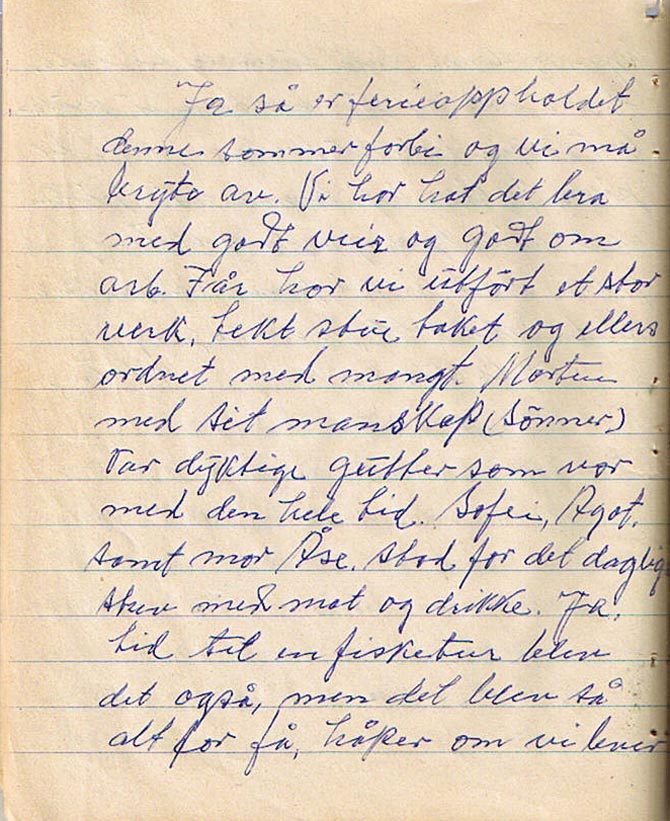 Ja så er ferieoppholdet
denne sommer forbi og vi må
bryte av. Vi har hat det bra
med godt veir og godt om
arb. I år har vi utført et stor
verk, tekt stue taket og ellers
ordnet med mangt. Morten
med sit manskap (sønner)
var dyktige gutter som var
med den hele tid. Sofei, Agot.
samt mor Åse. stod for det daglig
strev med mat og drikke. Ja,
tid til en fisketur blev
det også, men det blev så
alt for få, håper om vi lever